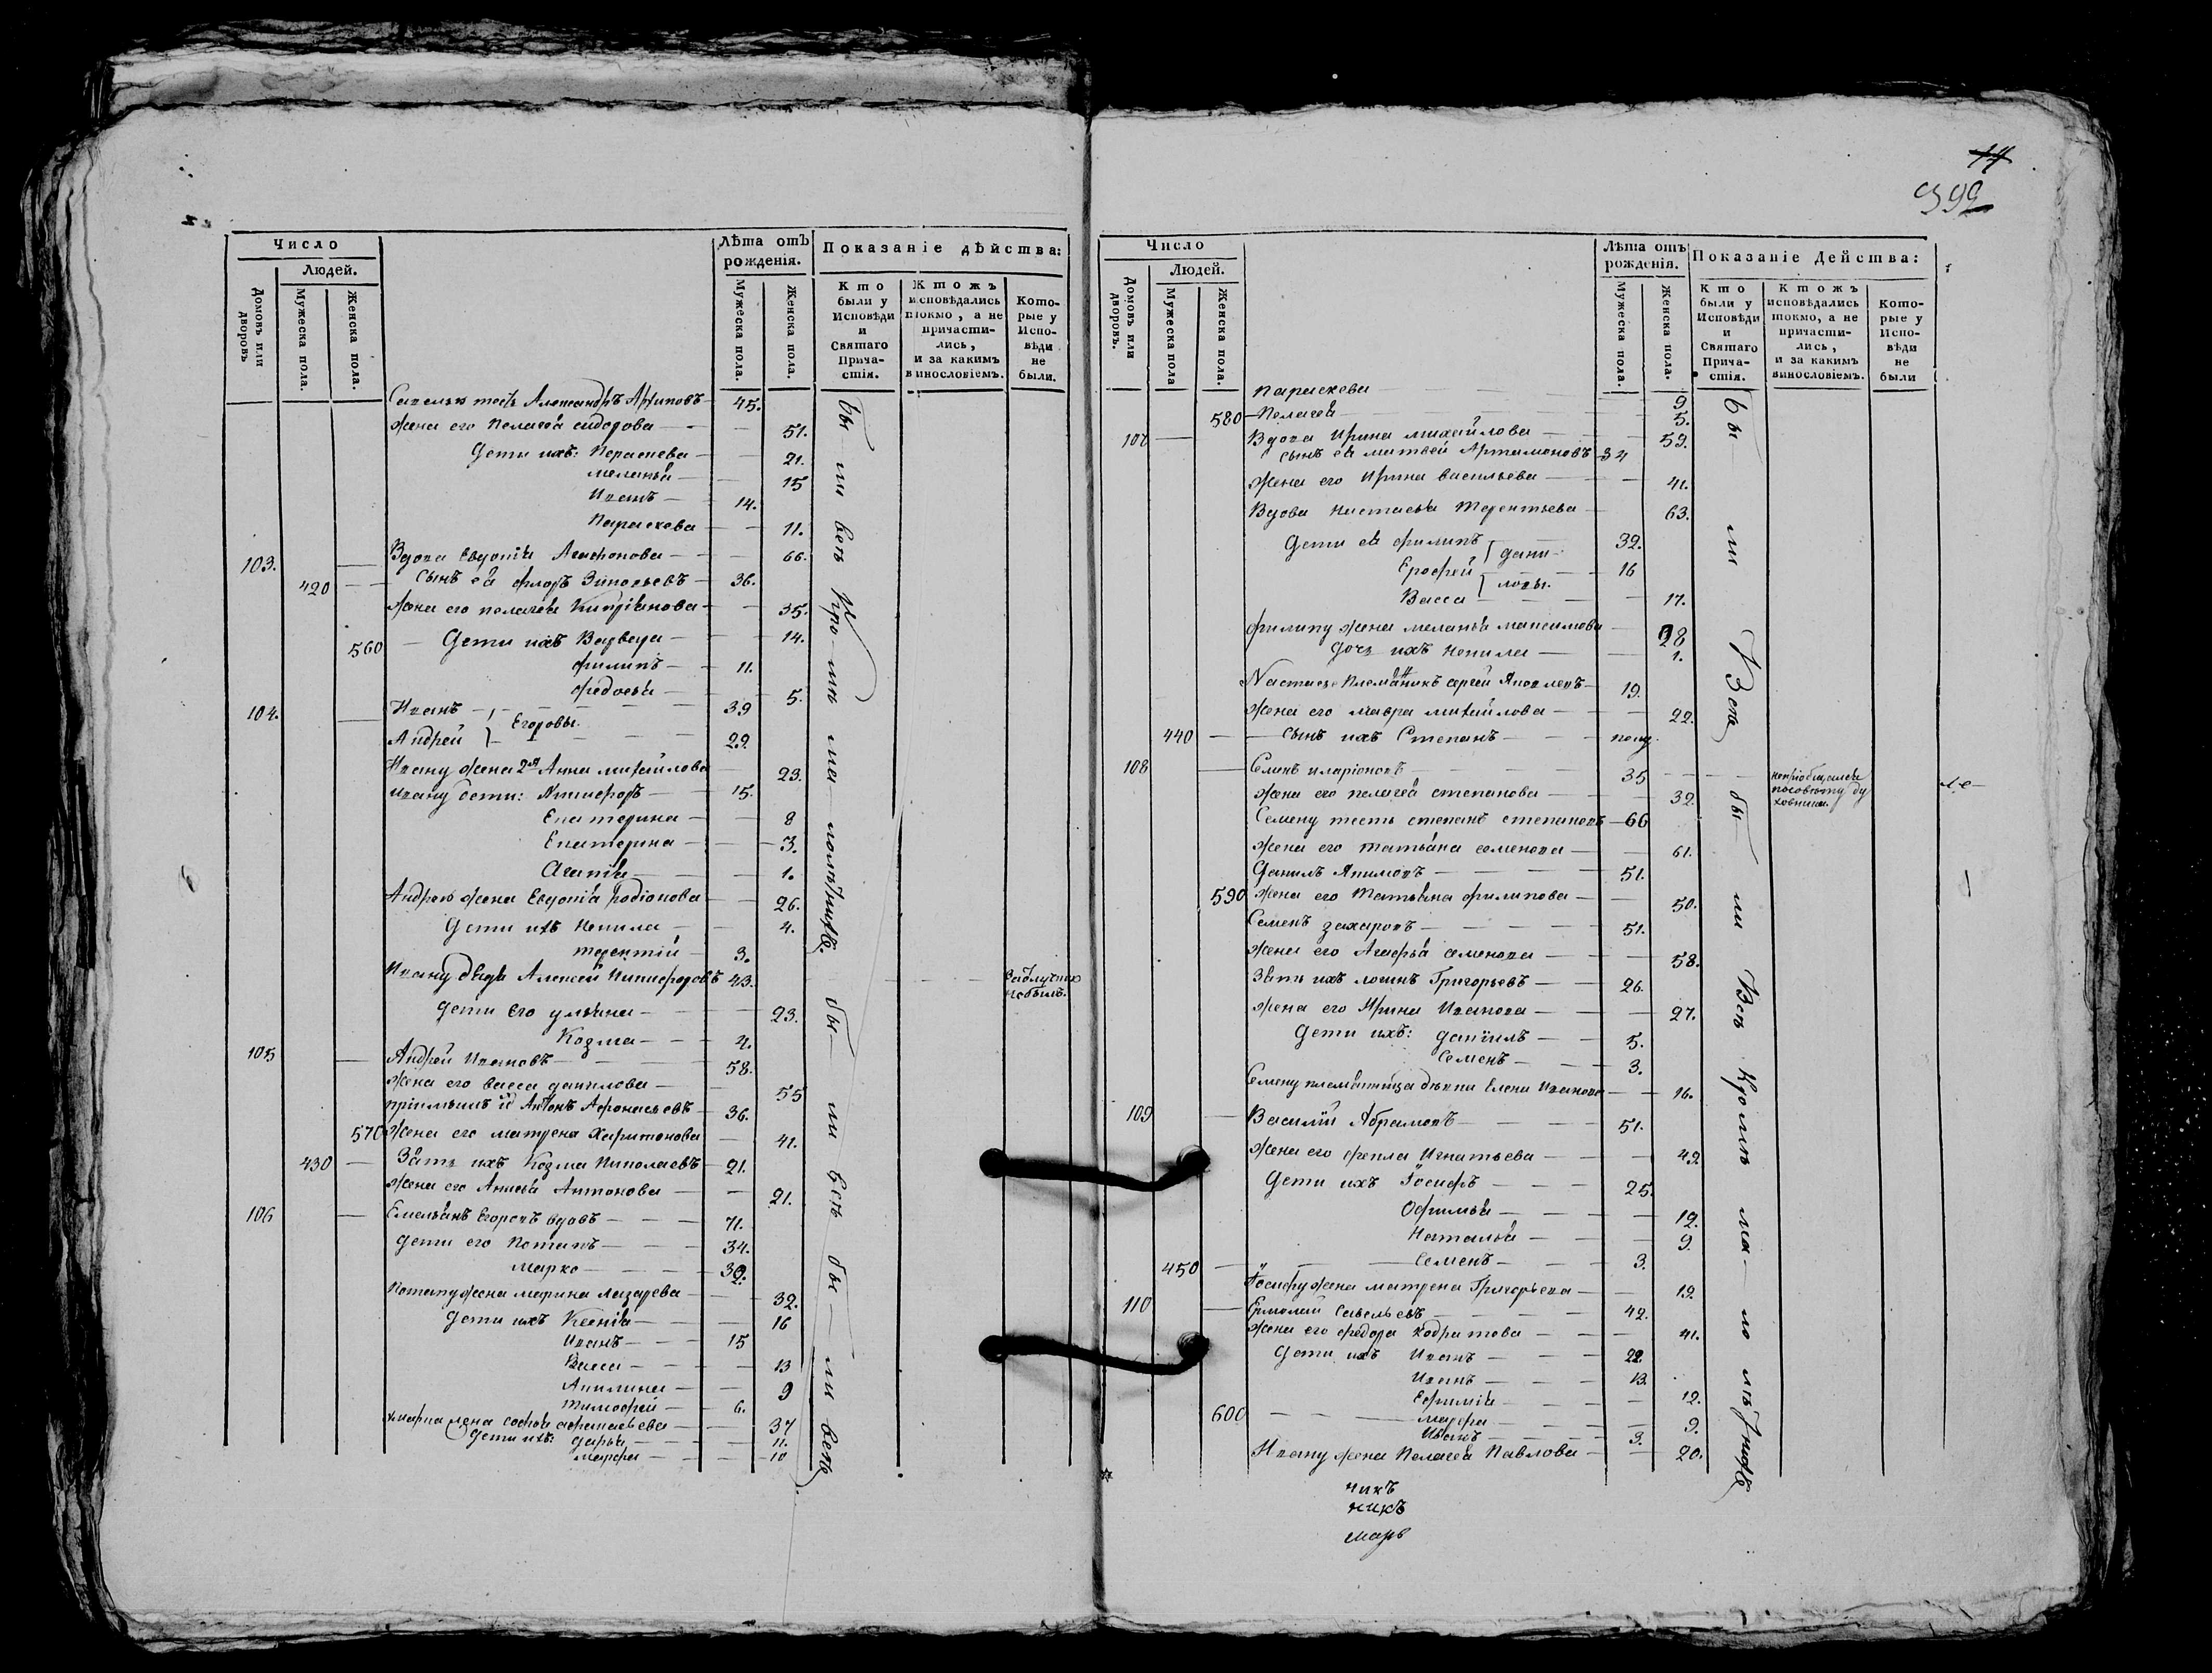 Число
Людей.
Домовъ или дворовъ
Мужеска пола.
Женска пола.
Лѣта отъ рожденія.
Мужеска пола.
Женска пола.
Показаніе дѣйства:
Кто были у Исповѣди и Святаго Прича-стія.
Ктожъ исповѣдались токмо, а не причасти-лись, и за какимъ винословіемъ.
Кото-рые у Испо-вѣди не были.
тесть Александръ Архиповъ — 45.
Жена его Пелагея сидорова — 51.
Дети ихъ: Параскева — 21.
меланья — 15
Иванъ — 14.
Параскева — 11.
103. Вдова Евдокія Агафонова — 66.
420 — Сынъ ея флоръ Зиновьевъ — 36.
Жена его пелагея Кипріанова — 35.
560 — Дети ихъ Варвара — 14.
филипъ — 11.
федосья — 5.
104. Иванъ — 39
Егоровы.
Андрей — 29.
Ивану жена 2я Анна михайлова 23.
Ивану дети: Никифоръ — 15.
Екатерина — 8
Екатерина — 3.
Агапія — 1.
Андрею жена Евдокія Родіонова — 26.
Дети ихъ Ненила — 4.
терентій — 3.
Ивану дядя Алексей Никифоровъ 43.
дети его ульяна — 23.
Козма — 4.
105 Андрей Ивановъ — 58.
Жена его васса данилова — 55
пріимышъ Антонъ Афонасьевъ — 36.
570 Жена его матрена Харитонова — 41.
430 — Зять ихъ Козма Николаевъ — 21.
Жена его Анисья Антонова — 21.
106 Емельянъ Егоровъ вдовъ — 71.
Дети его Потапъ — 34.
марко — 32.
Потапу жена марина лазарева — 32.
Дети ихъ Ксенія — 16
Иванъ — 15
Васса — 13
Акилина — 9
тимофей — 6.
жена софья афанасьева — 37
Дети ихъ: дарья — 11.
марфа — 10
бы ли всѣ кро ме ма лолѣтнихъ. бы ли всѣ бы ли всѣ
17
392
Число
Людей.
Домовъ или дворовъ.
Мужеска пола
Женска пола.
Лѣта отъ рожденія.
Мужеска пола.
Женска пола.
Показаніе Действа:
Кто были у Исповѣди и Святаго Прича-стія.
Ктожъ исповѣдались токмо, а не причасти-лись, и за какимъ винословіемъ.
Кото-рые у Испо-вѣди не были
Параскева — 9
580 — Пелагея — 5.
107 — Вдова Ирина михайлова — 59.
сынъ ея матвей Артамоновъ 34
Жена его Ирина васильева — 41.
Вдова Настасья Терентьева — 63.
Дети ея филипъ — 32.
дани-
Ерофей — 16
ловы.
Васса — 17.
филипу жена меланья максимова 28
Дочь ихъ Ненила — 1.
Настасье Племянникъ сергей Яковлевъ — 19.
Жена его мавра михайлова — 22.
440 — Сынъ ихъ Степанъ — полу.
108 Семенъ иларіоновъ — 35
непріобщался посовету ду ховника.
Жена его пелагея степанова — 32.
Семену тесть степанъ степановъ — 66
Жена его татьяна семенова — 61.
Данилъ Якимовъ — 51.
590 Жена его Татьяна филипова — 50.
Семенъ захаровъ — 51.
Жена его Агафья семенова — 58.
Зять ихъ Григорьевъ — 26.
Жена его Ирина Иванова — 27.
Дети ихъ: даніилъ — 5.
Семенъ — 3.
Семену племянница девка Елена Иванова — 16.
109 Василій Абрамовъ — 51.
Жена его фекла Игнатьева — 49.
Дети ихъ Іосифъ — 25.
Офимья — 12.
Наталья — 9.
450 — Семенъ — 3.
Іосифу жена матрена Григорьева — 19.
110 Ермолай Савельевъ — 42.
Жена его федора Кодратова — 41.
Дети ихъ Иванъ — 22.
Иванъ — 13.
Ефимія — 12.
600 — марфа — 9.
Иванъ — 3.
Ивану жена Пелагея Павлова — 20.
бы ли всѣ бы ли всѣ кроме ма ло лѣтнихъ
чикъ
никъ